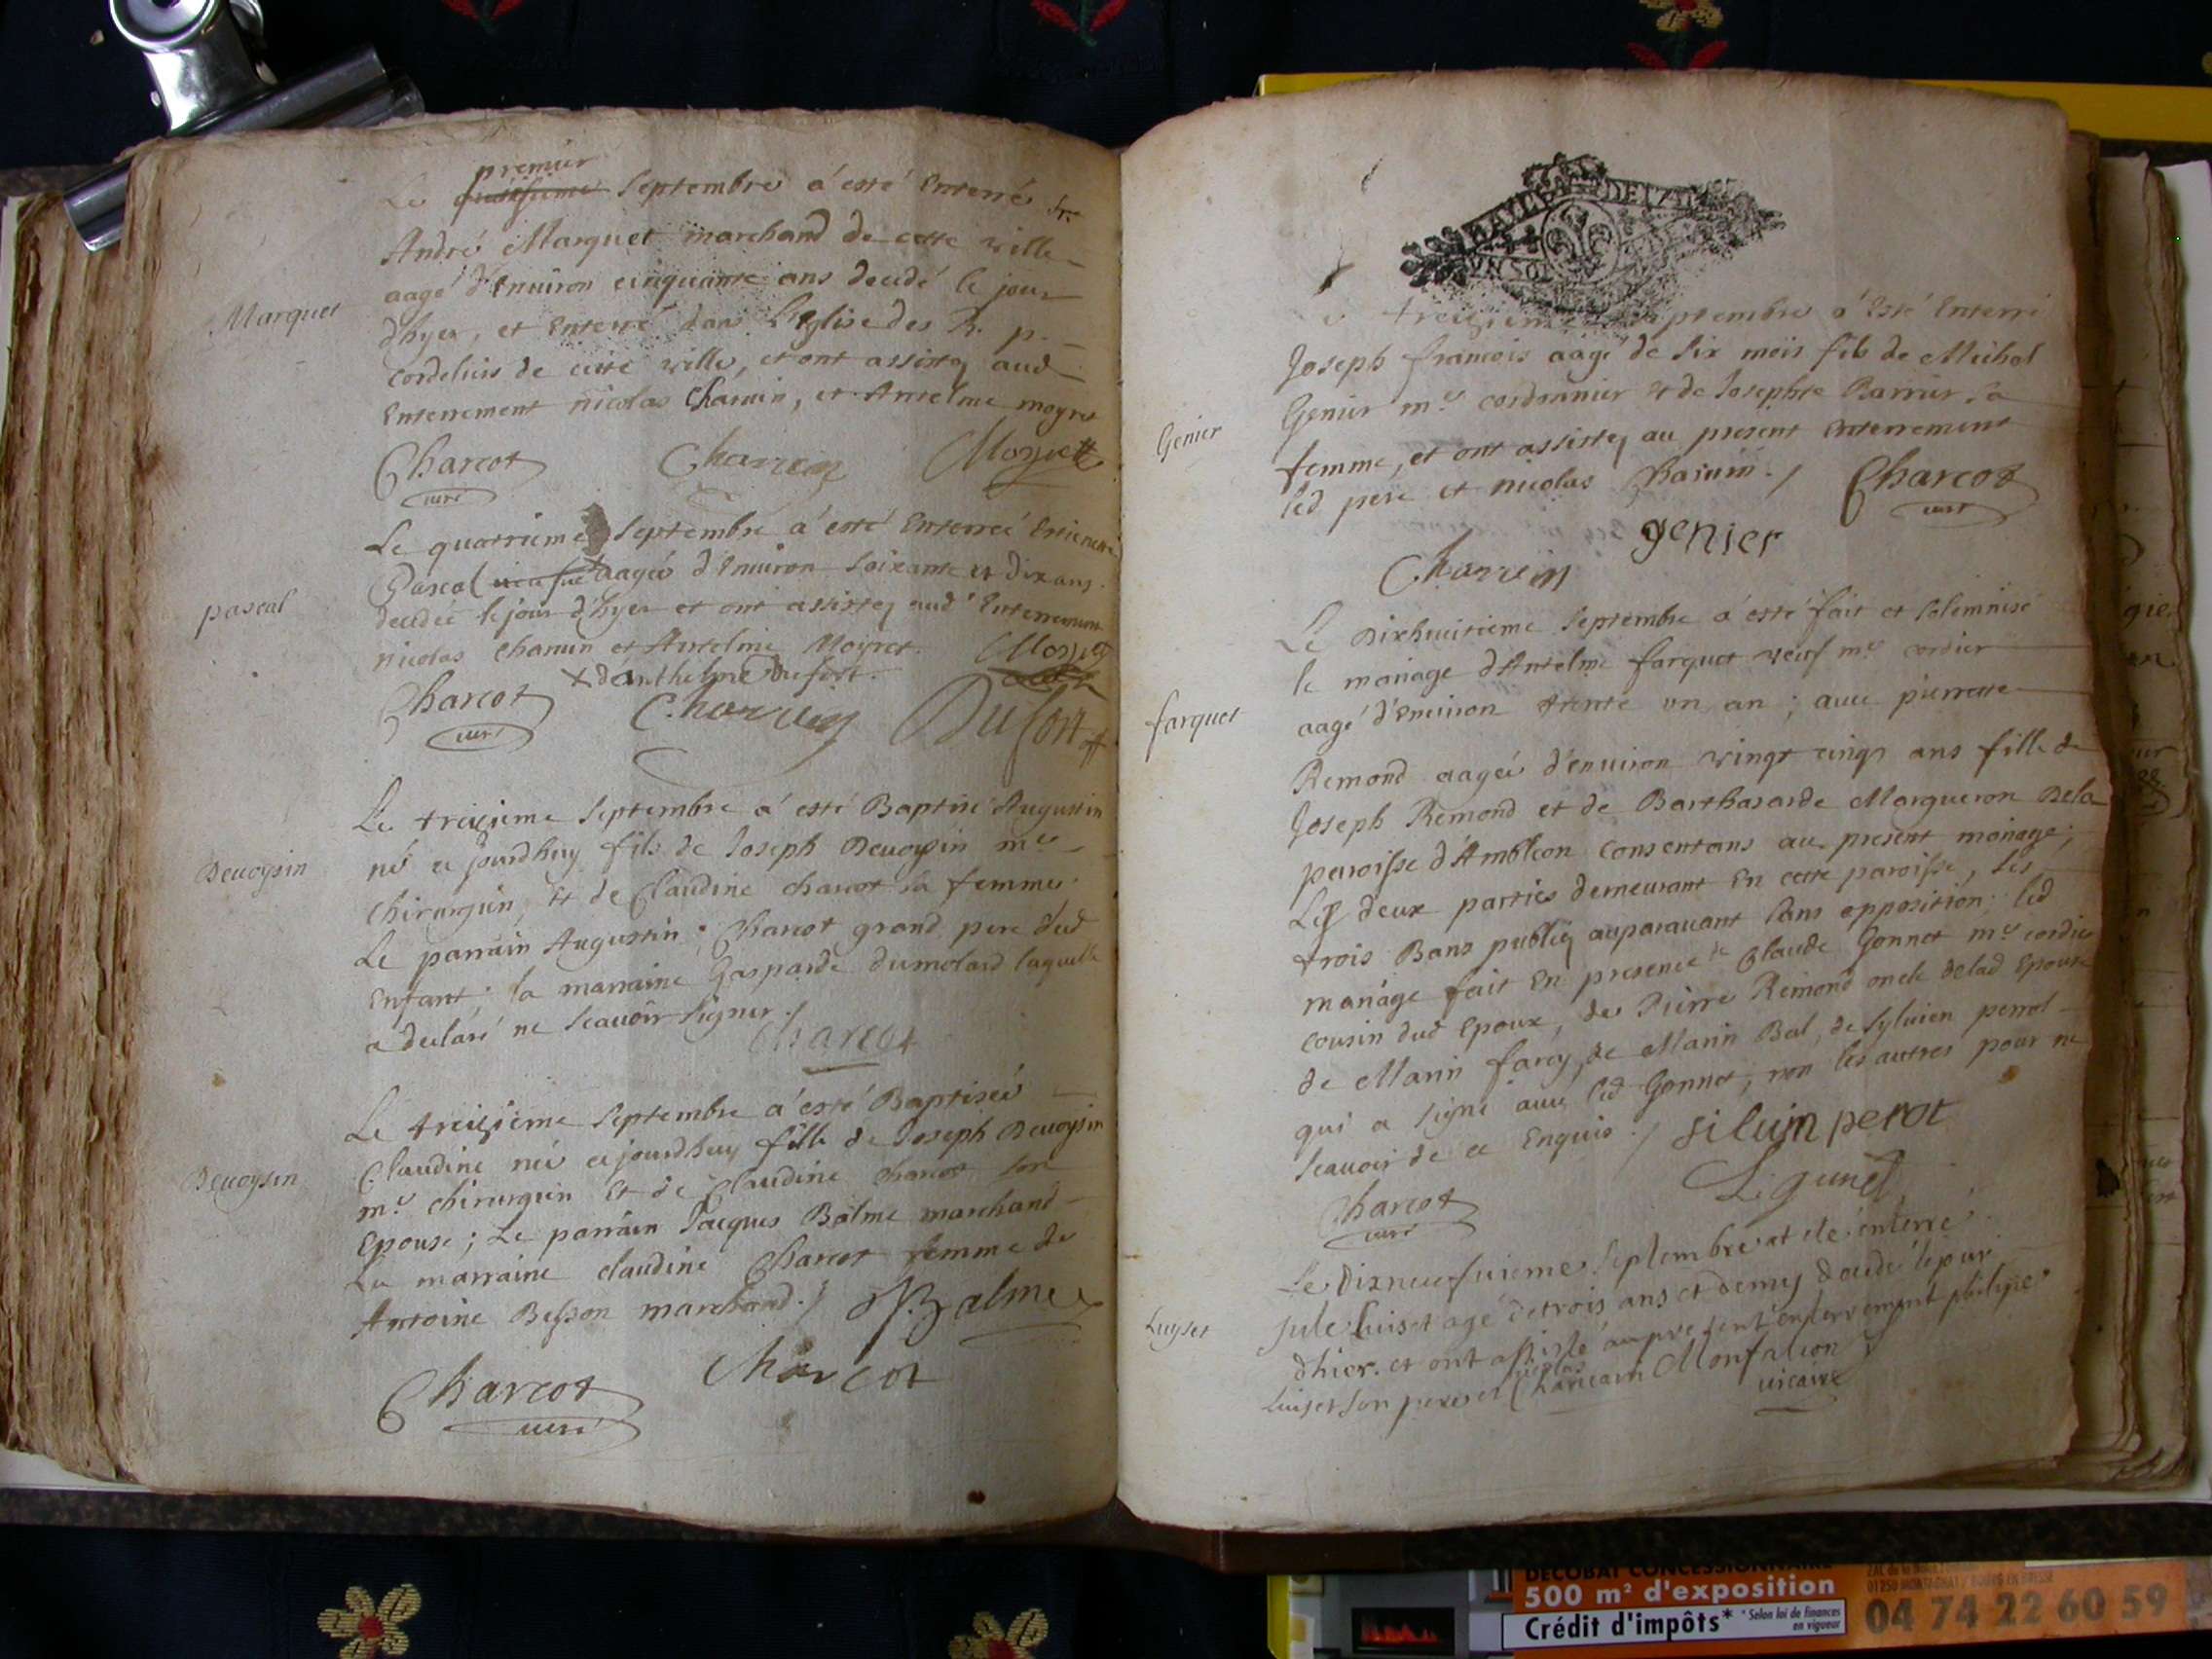 premier
Le troisieme Septembre a esté Enterré Sr.
André Marquet marchand de cette ville
aagé d'Enuiron cinquante ans decedé le jour
Marquet
d'hyer, et Enterré dans L'Eglise des R. p.
cordeliers de cette ville, et ont assistez aud
Enterrement nicolas Charuin, et Antelme moyret
Charcot Charuin Moyret
curé
Le quatrieme Septembre a esté Enterreé Estiennette
Pascal aageé d'Enuiron soixante et dix ans
pascal
decedeé le jour d'hyer et ont assistez aud Enterrement
nicolas charuin et Antelme Moyret. Moyret
+ d'anthelme Dufort.
Charcot Charuin Dufort
curé
Le treizieme Septembre a esté Baptisé Augustin
né ce jourdhuy fils de Joseph Deuoysin me
Deuoysin
chirurgien, et de Claudine charcot sa femme
Le parrain Augustin Charcot grand pere dud
Enfant; la marraine Gasparde dumolard laquelle
a declaré ne scauoir signer.
Charcot
Le treizieme Septembre a esté Baptiseé
Claudine neé ce jourdhuy fille de Joseph Deuoysin
Deuoysin
me chirurgien et de Claudine charcot son
Epouse; Le parrain Jacques Balme marchand
La marraine claudine Charcot femme de
Antoine Besson marchand. / Balme
Charcot charcot
curé
treizieme Septembre a Esté Enterré
Joseph francois aagé de six mois fils de Michel
Genier me cordonnier et de Josephte Barrier sa
Genier
femme, et ont assistez au present Enterrement
led pere et nicolas Charuin. / Charcot
curé
genier
Charuin
Le Dixhuitieme Septembre a esté fait et solemnisé
le mariage d'Antelme farquet veuf me cordier
farquet
aagé d'Enuiron trente un an; auec pierrette
Remond aageé d'enuiron vingt cinq ans fille de
Joseph Remond et de Barthasarde Margueron Dela
paroisse d'Ambleon consentans au present mariage;
Les deux parties demeurant En cette paroisse, les
trois Bans publiez auparauant sans opposition; led
mariage fait En presence de Claude Gonnet me cordier
cousin dud Epoux, de Pierre Remond oncle delad Epouse
de Marin farcy, de Marin Bal, de syluien perrot
qui a signé auec led Gonnet, non les autres pour ne
scauoir de ce Enquis. / siluin perot
Charcot
curé
Le Dixneufuieme Septembre at ete enterré
Luyset
Jule luiset agé de trois ans et demy decedé le jour
dhier. et ont assisté au present enterrement philipe
nicolas
luiset son pere et Charuain Monfalcon
vicaire
DECOBAT CONCESSIONNAIRE
500 m² d'exposition
Crédit d'impôts* * Selon loi de finances
en vigueur
04 74 22 60 59